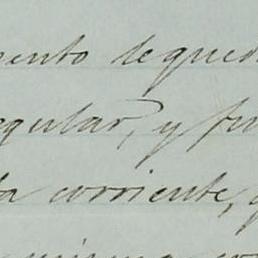 ento lequed
egular, y fu
la corriente,